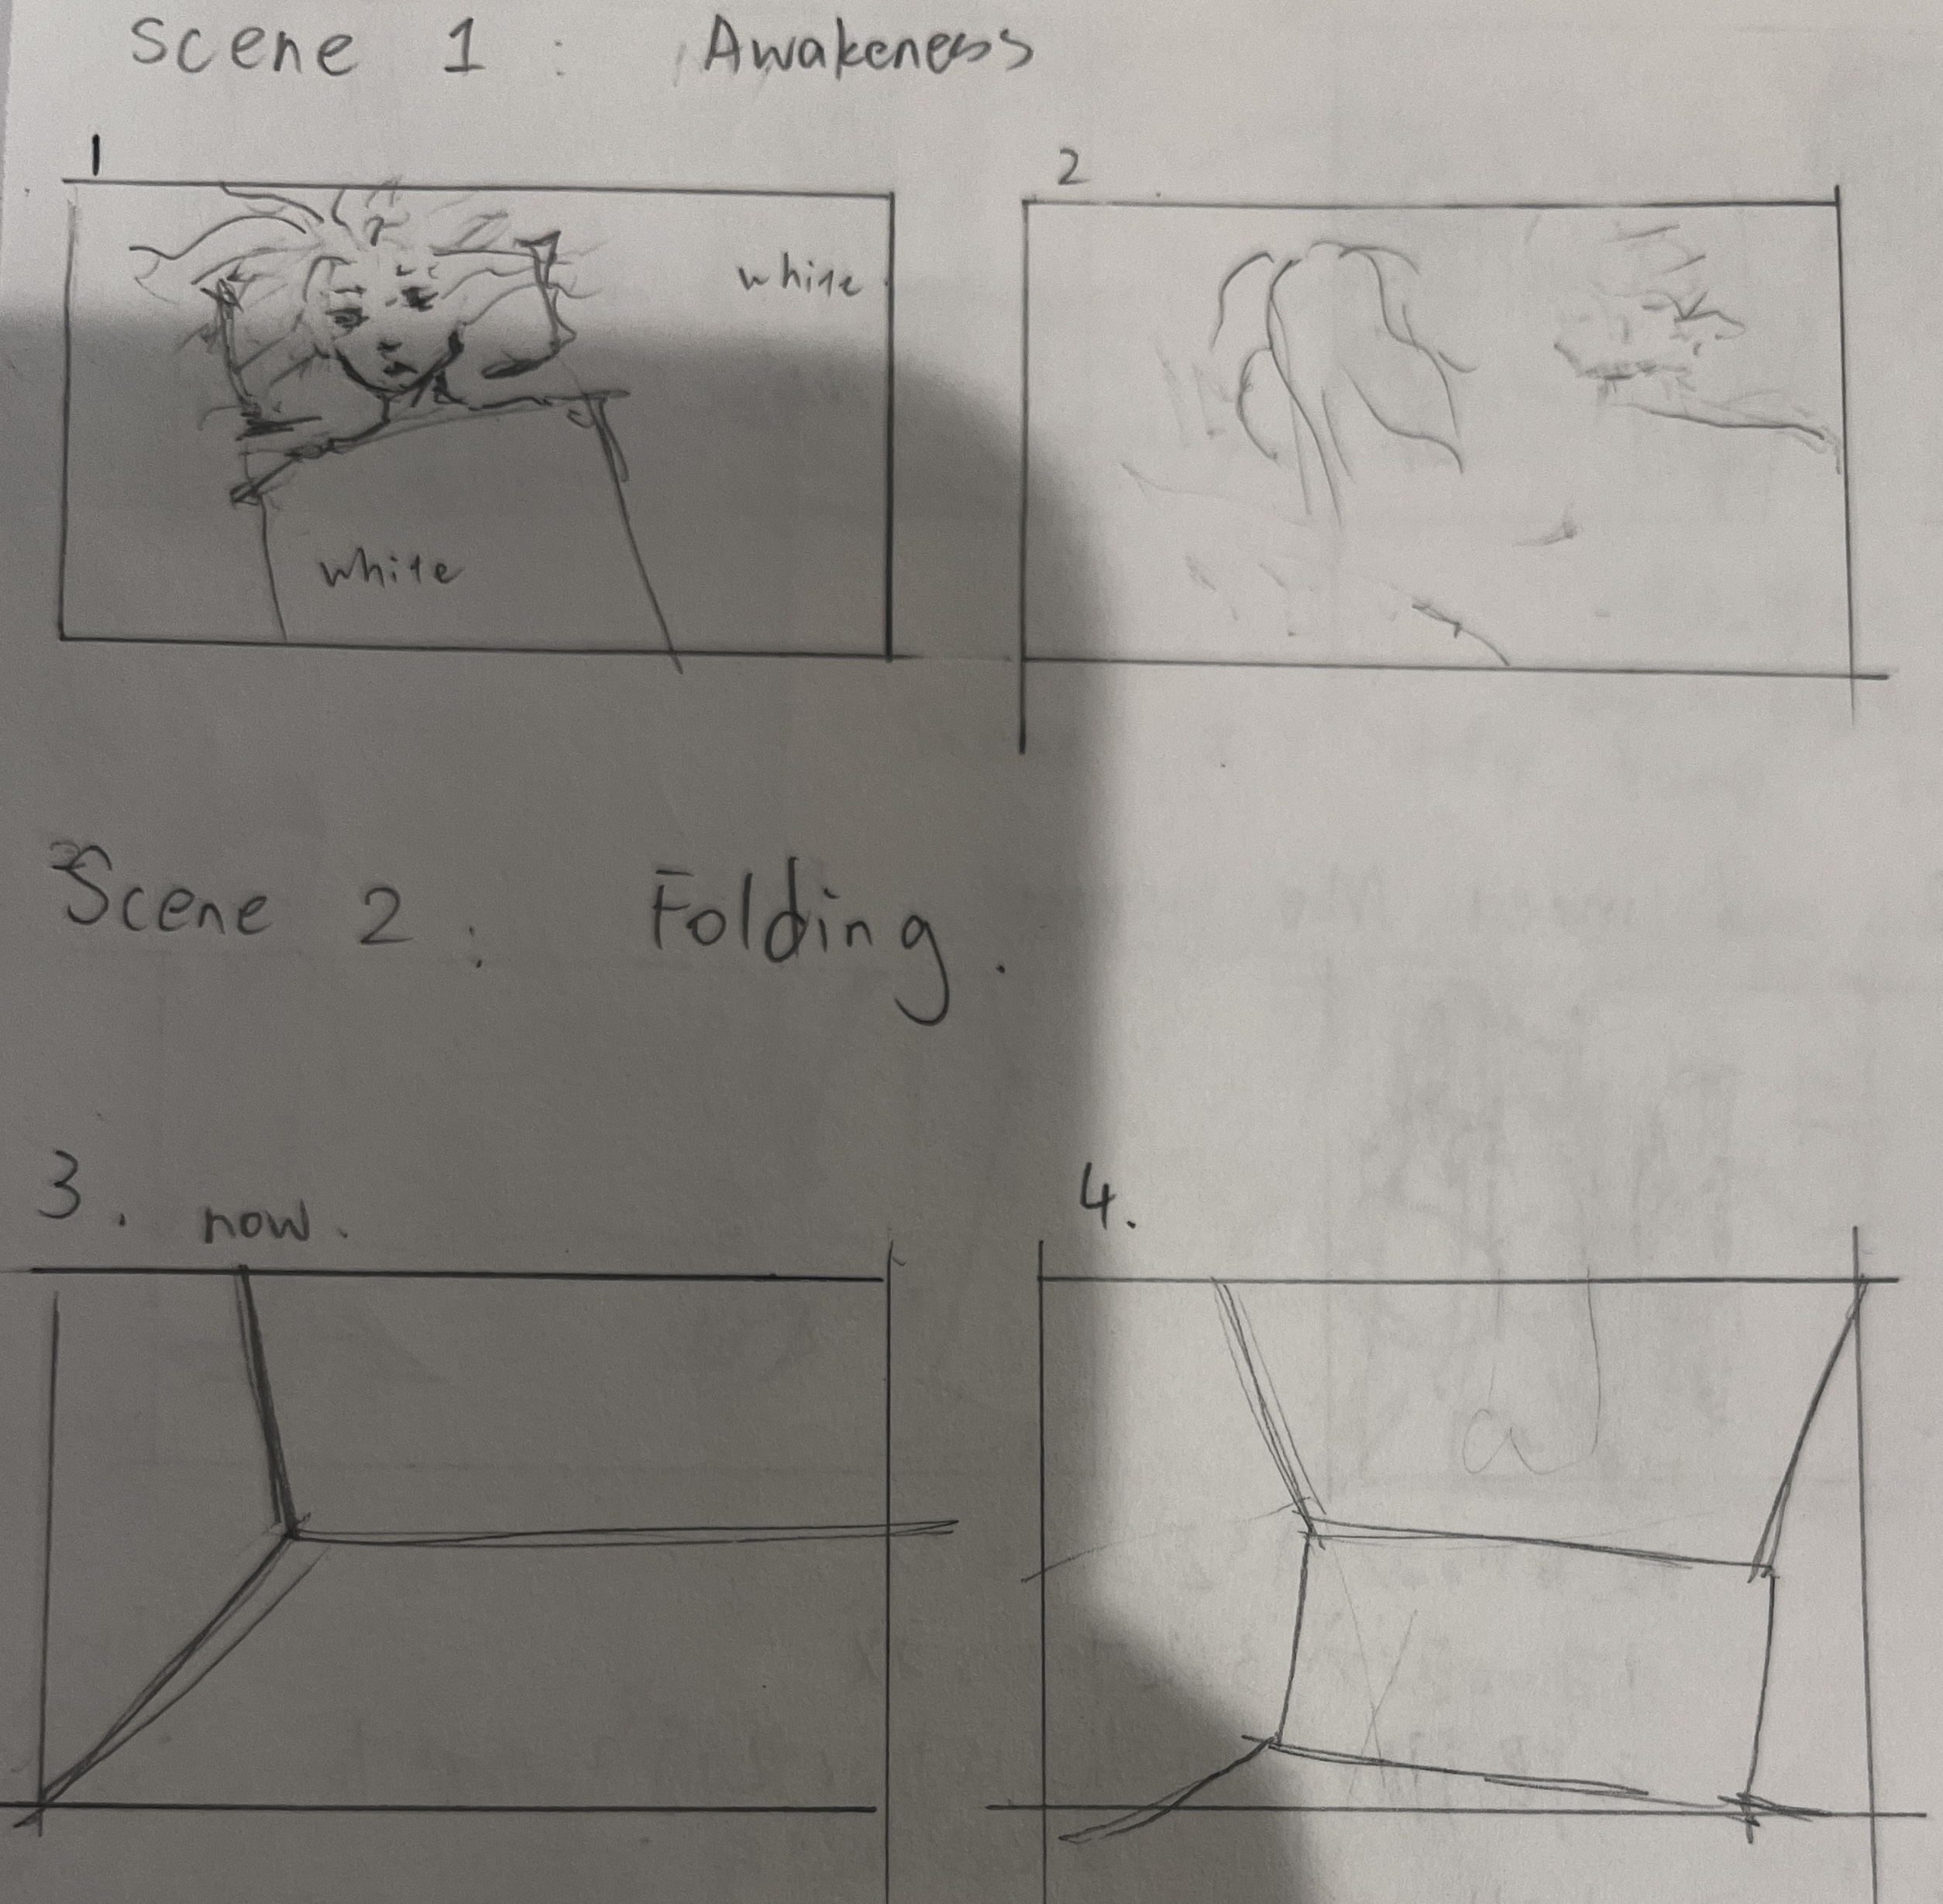 Scene 1 : Awakeness
1
2
?
white
white
Scene 2 : Folding.
3. now.
4.